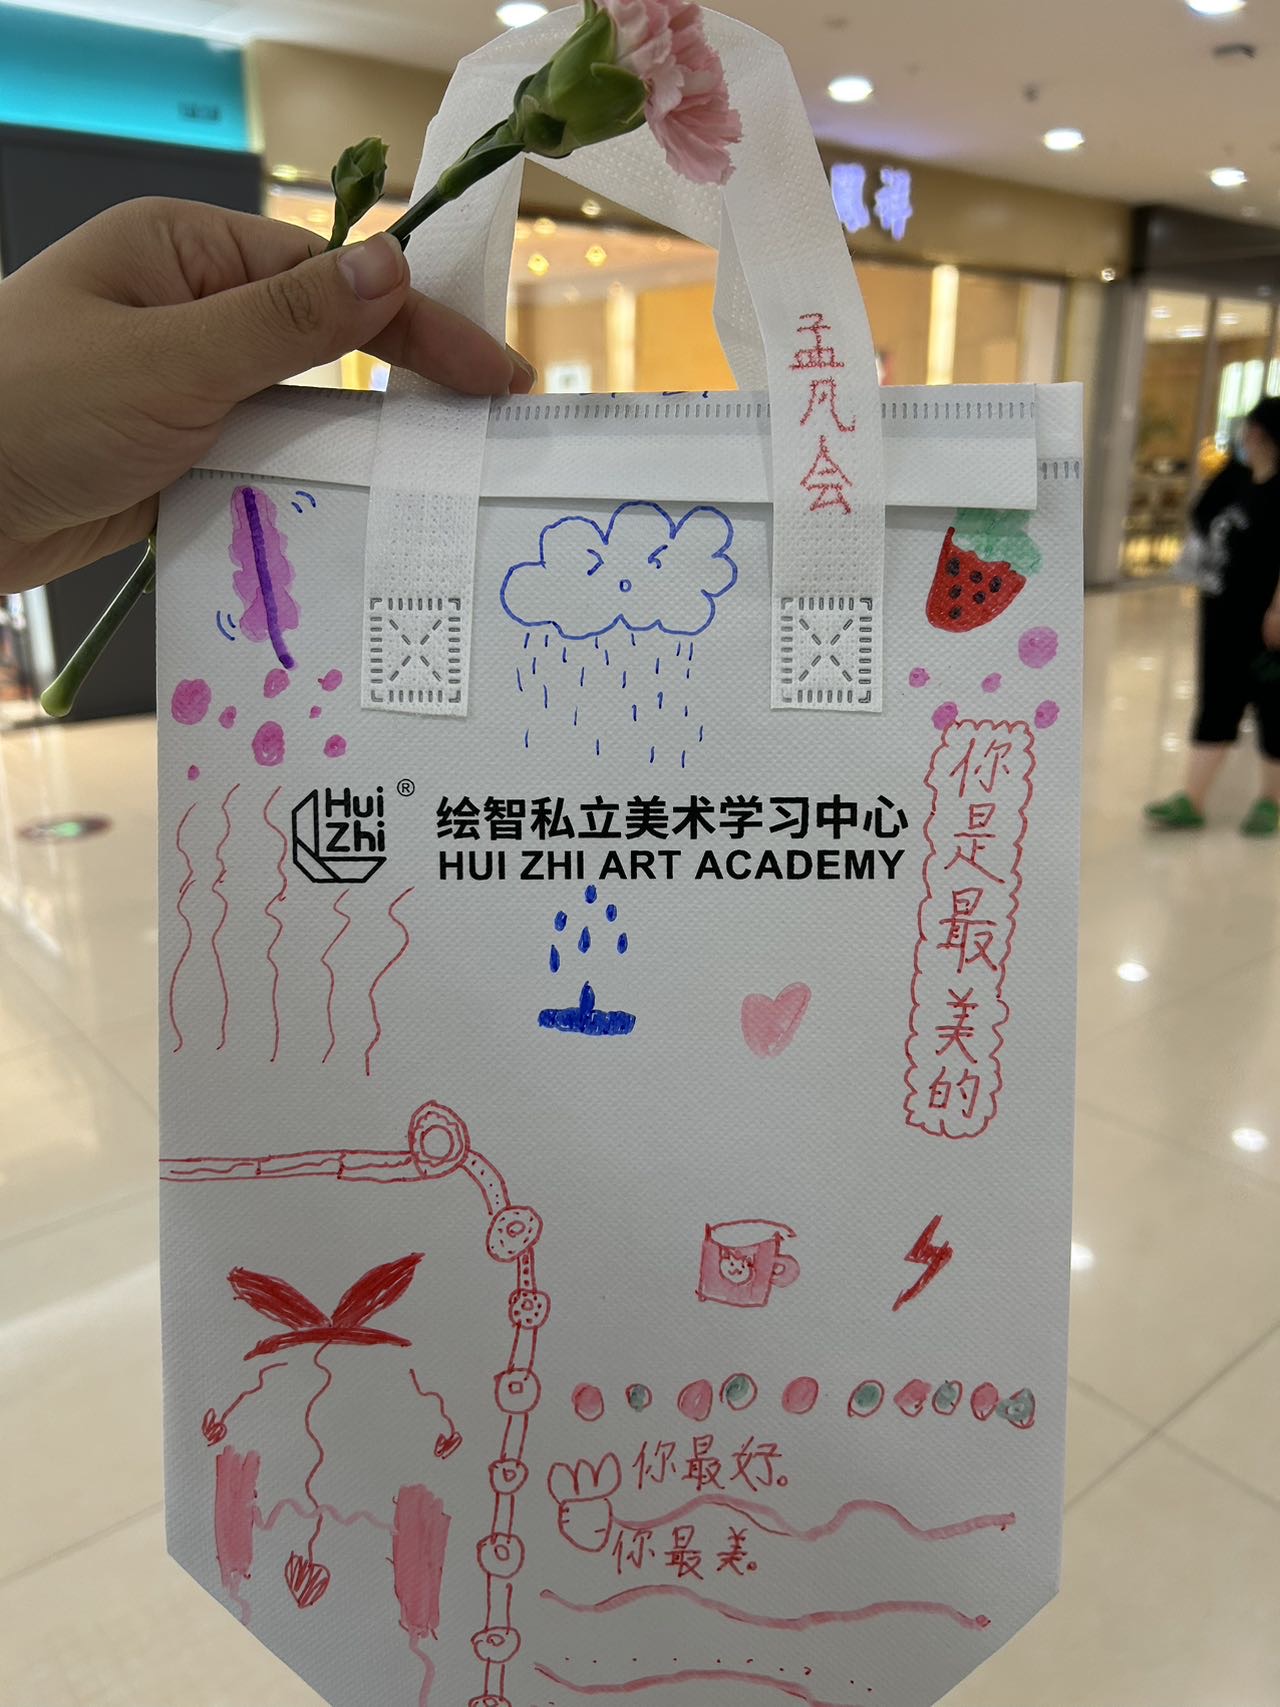 孟凡会
Hui
Zhi
®
绘智私立美术学习中心
HUI ZHI ART ACADEMY
你是最美的
你最好。
你最美。